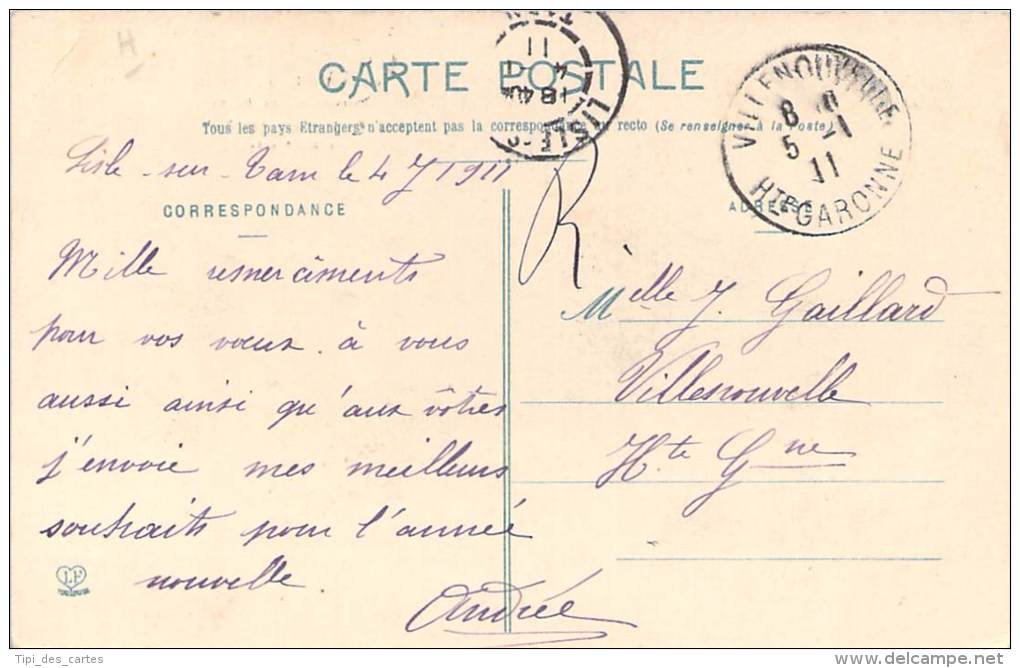 H
CARTE POSTALE
Tous les pays Etrangers n'acceptent pas la correspondance au recto (Se renseigner à la Poste)
LISLE-S
TARN
18 40
4 - 1
11
VILLENOUVELLE
8
5 -1
11
HTE GARONNE
Lisle-sur-Tarn le 4 J 1911
CORRESPONDANCE
ADRESSE
R
Mille remerciments
pour vos voeux. à vous
aussi ainsi qu'aux vôtres
j'envoie mes meilleurs
souhaits pour l'année
nouvelle.
Andrée
Melle J. Gaillard
Villenouvelle
Hte Gne
LF
Tipi_des_cartes
www.delcampe.net